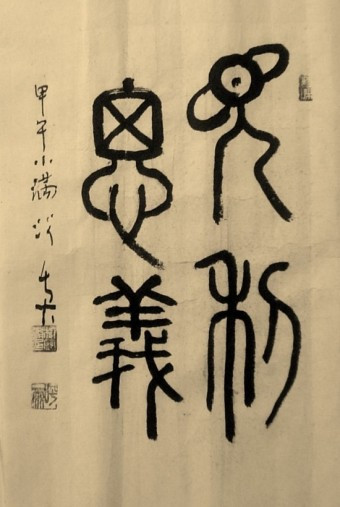 見利
思義
甲午小満